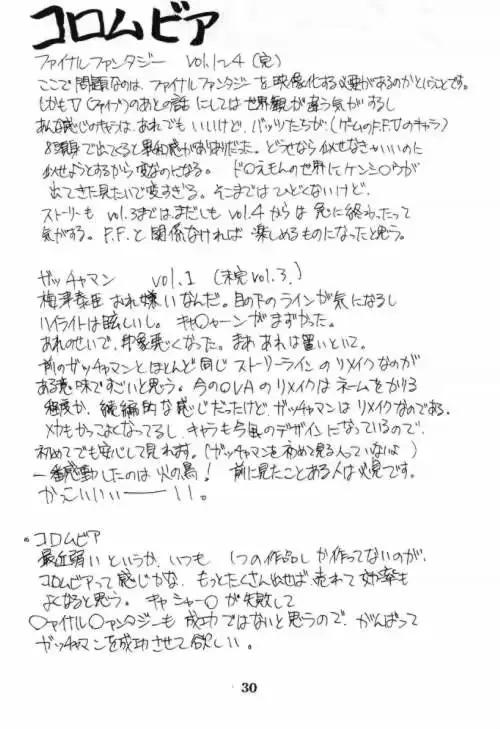 コロムビア
ファイナルファンタジー vol.1~4 (完)
ここで問題なのは、ファイナルファンタジーを映像化する必要があるのかということです。
しかもⅤ(ファイブ)のあとの話にしては世界観が違う気がするし
あんな感じのキャラは、あれでもいいけど、バッツたちが、(ゲームのF.F.Ⅴのキャラ)
8頭身で出てくると違和感がありありだった。どうせなら似せなきゃいいのに
似せようとするから変なのになる。 ド○えもんの世界にケンシ○ウが
出てきた見たいで変すぎる。そこまではひどくないけど、
ストーリーも vol.3まではまだしも vol.4からは急に終わったって
気がする。F.F.と関係なければ楽しめるものになったと思う。
ガッチャマン vol.1 (未完vol.3.)
梅津泰臣おれ嫌いなんだ。目の下のラインが気になるし
ハイライトは眩しいし。キャ○ャーンがまずかった。
あれのせいで、印象悪くなった。まあ、あれは置いといて、
前のガッチャマンとほとんど同じストーリーラインのリメイクなのが
ある意味ですごいと思う。今のOVAのリメイクはネームをかりる
程度か、続編的な感じだったけど、ガッチャマンはリメイクなのである。
メカもかっこよくなってるし、キャラも今風のデザインになっているので、
初めてでも安心して見れます。(ガッチャマンを初めて見る人っていないよ)
一番感動したのは火の鳥! 前に見たことある人は必見です。
かっこいいいーーー!!。
。コロムビア
最近弱いというか、いつも1つの作品しか作ってないのが、
コロムビアって感じかな、もっとたくさん出せば、売れて効率も
よくなると思う。キャシャー○が失敗して
○ァイナル○ァンタジーも成功ではないと思うので、がんばって
ガッチャマンを成功させて欲しい。
30